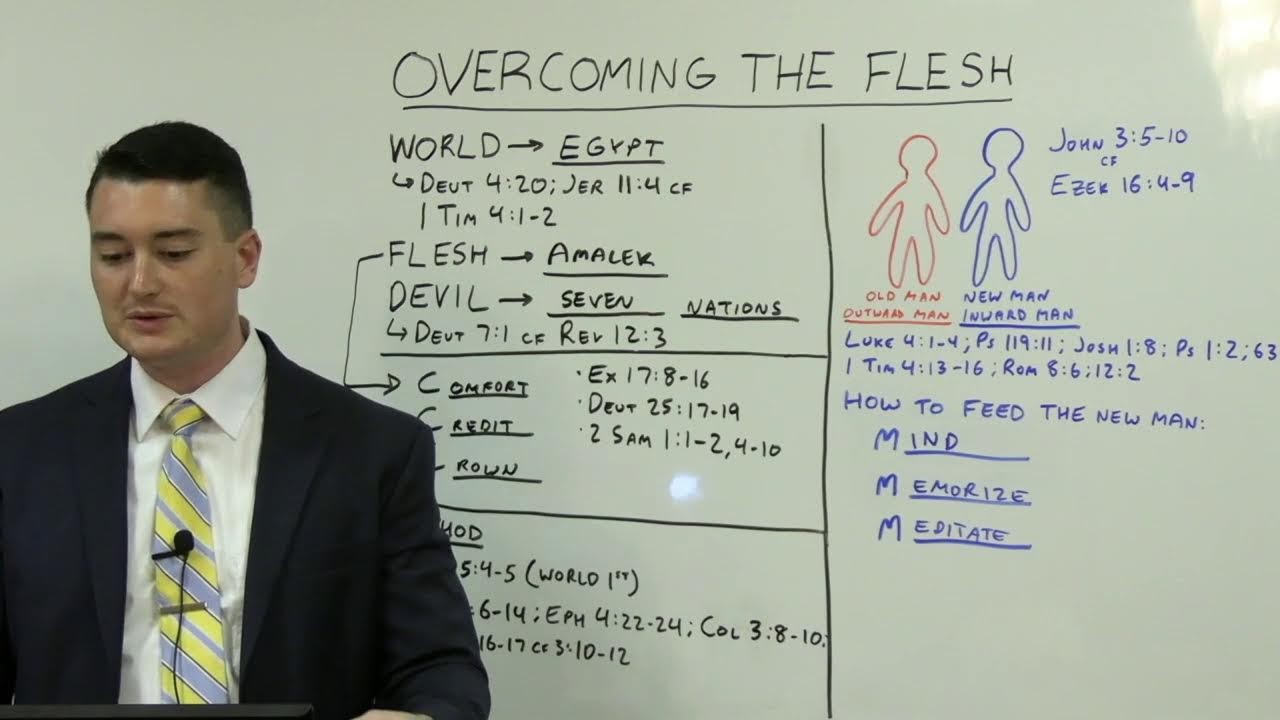 OVERCOMING THE FLESH
WORLD → EGYPT
↳ DEUT 4:20; JER 11:4 CF
1 TIM 4:1-2
FLESH → AMALEK
DEVIL → SEVEN NATIONS
↳ DEUT 7:1 CF REV 12:3
COMFORT
CREDIT
ROWN
· EX 17:8-16
· DEUT 25:17-19
· 2 SAM 1:1-2, 4-10
HOD
5:4-5 (WORLD 1ST)
:6-14; EPH 4:22-24; COL 3:8-10;
16-17 CF 3:10-12
JOHN 3:5-10
CF
EZEK 16:4-9
OLD MAN
OUTWARD MAN
NEW MAN
INWARD MAN
LUKE 4:1-4; PS 119:11; JOSH 1:8; PS 1:2; 63
1 TIM 4:13-16; ROM 8:6; 12:2
HOW TO FEED THE NEW MAN:
MIND
MEMORIZE
MEDITATE